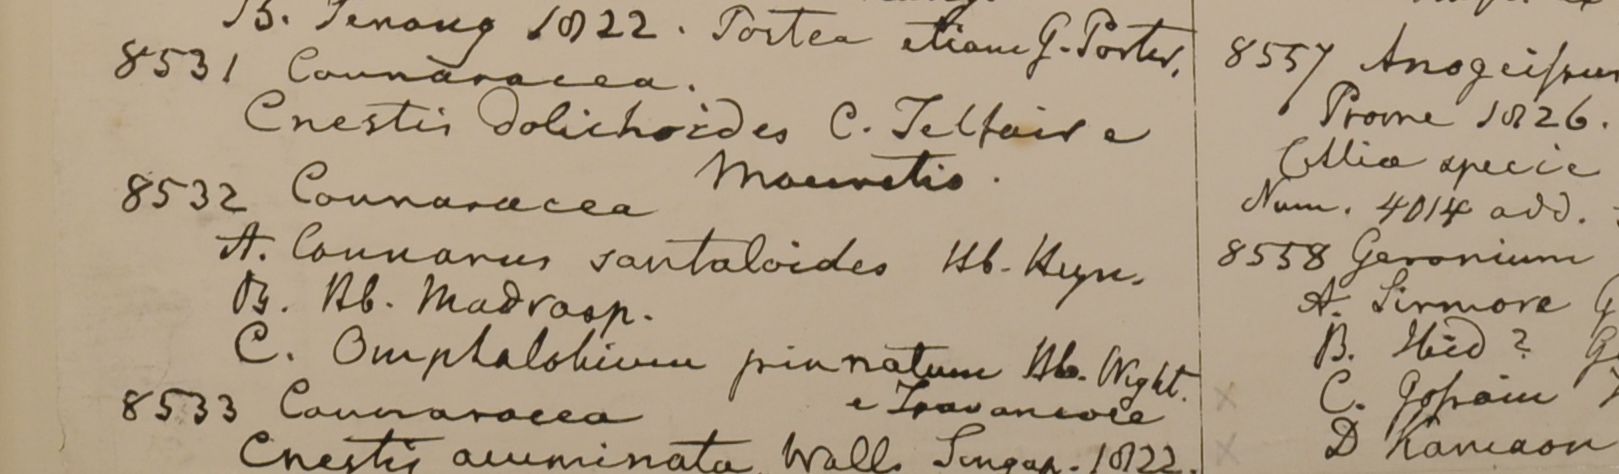 B. Penang 1822. Porter etiam G. Porter.
8531 Connaracea.
Cnestis dolichoides C. Telfair e
Mauritio.
8532 Connaracea
A. Connarus santaloides Hb. Heyn.
B. Hb. Madrasp.
C. Omphalobium pinnatum Hb. Wight.
e Travancore
8533 Connaracea
Cnestis acuminata Wall. Singap. 1822.
8557 Anogeissus
Prome 1826.
specie
Num. 4014 add.
8558 Geranium
A. Sirmore G
B. Ibid? G
C. Gosain
D Kamaon